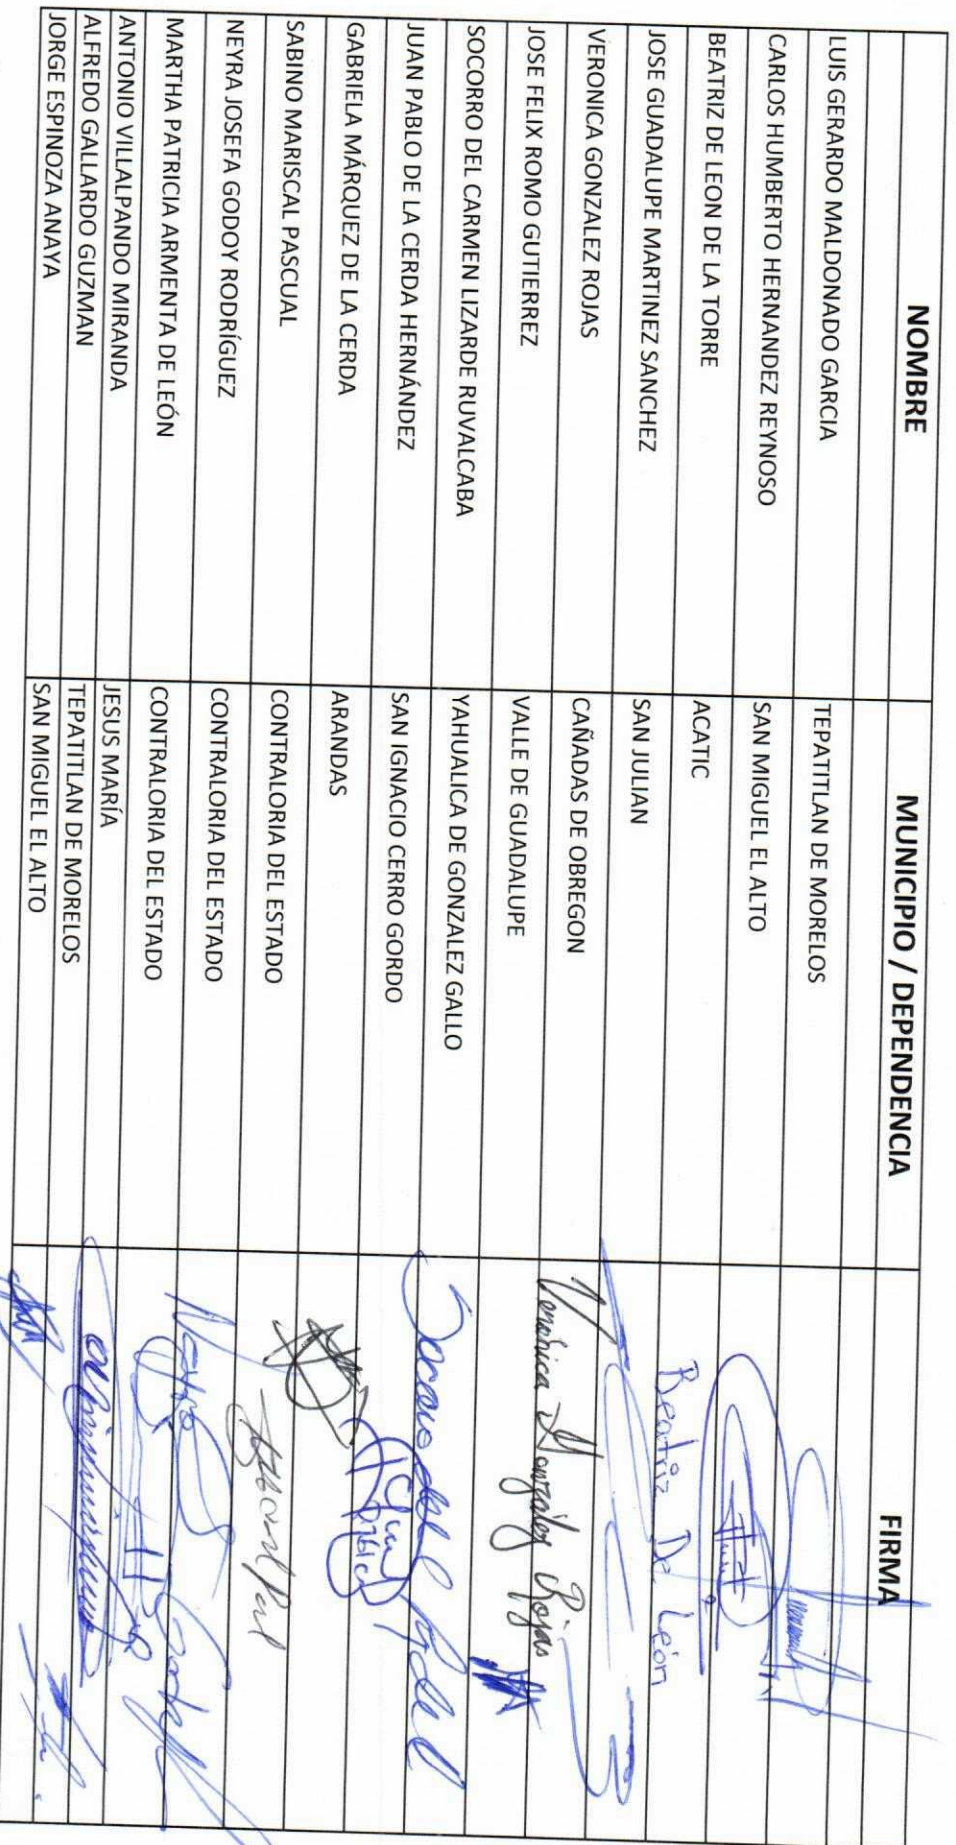 NOMBRE MUNICIPIO / DEPENDENCIA FIRMA
LUIS GERARDO MALDONADO GARCIA TEPATITLAN DE MORELOS
CARLOS HUMBERTO HERNANDEZ REYNOSO SAN MIGUEL EL ALTO
BEATRIZ DE LEON DE LA TORRE ACATIC Beatriz De León
JOSE GUADALUPE MARTINEZ SANCHEZ SAN JULIAN
VERONICA GONZALEZ ROJAS CAÑADAS DE OBREGON Veronica González Rojas
JOSE FELIX ROMO GUTIERREZ VALLE DE GUADALUPE
SOCORRO DEL CARMEN LIZARDE RUVALCABA YAHUALICA DE GONZALEZ GALLO
JUAN PABLO DE LA CERDA HERNÁNDEZ SAN IGNACIO CERRO GORDO
GABRIELA MÁRQUEZ DE LA CERDA ARANDAS
SABINO MARISCAL PASCUAL CONTRALORIA DEL ESTADO
NEYRA JOSEFA GODOY RODRÍGUEZ CONTRALORIA DEL ESTADO
MARTHA PATRICIA ARMENTA DE LEÓN CONTRALORIA DEL ESTADO
ANTONIO VILLALPANDO MIRANDA JESUS MARÍA
ALFREDO GALLARDO GUZMAN TEPATITLAN DE MORELOS
JORGE ESPINOZA ANAYA SAN MIGUEL EL ALTO